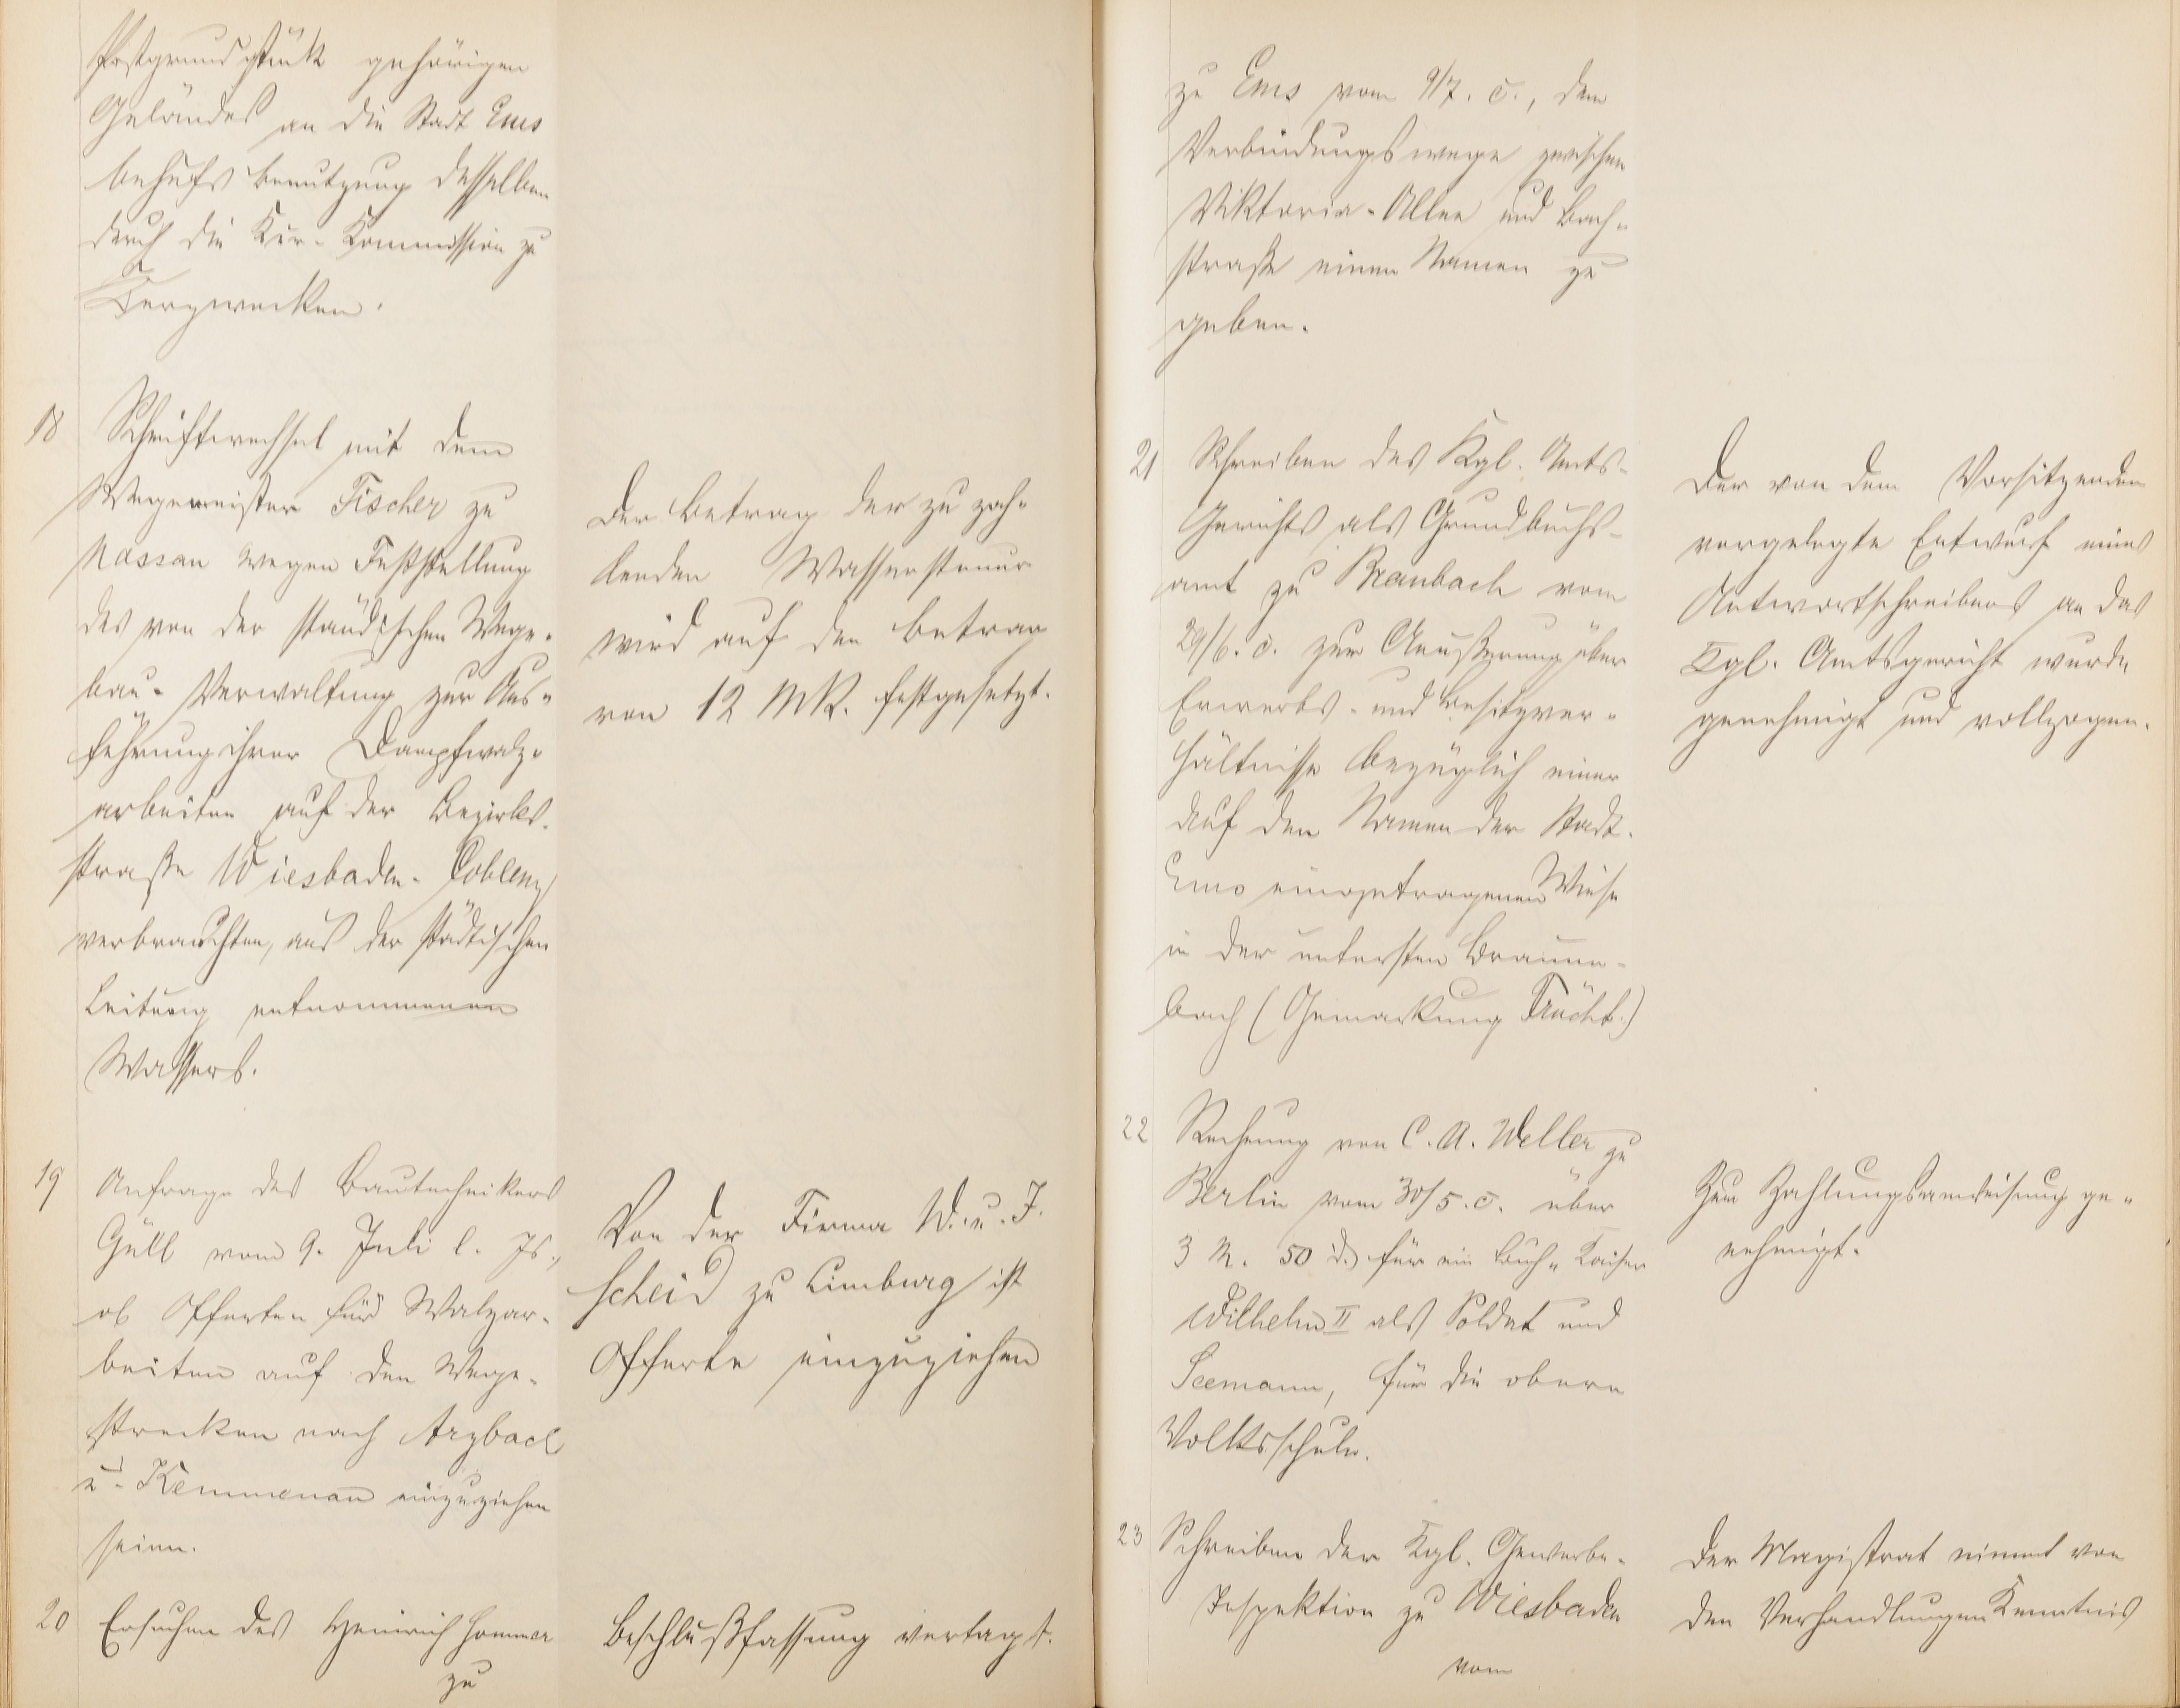 Postgrundstück gehörigen
Geländes an die Stadt Ems
behufs Benutzung desselben
durch die Kur-Kommission zu
Kurzwecken.
18 Schriftwechsel mit dem
Wegemeister Fischer zu
Nassau wegen Feststellung
des von der ständischen Wege-
bau-Verwaltung zur Aus-
führung ihrer Dampfwalz-
arbeiten auf der Bezirks-
straße Wiesbaden-Coblenz
verbrauchten, aus der städtischen
Leitung entnommenen
Wassers.
Der Betrag der zu zah-
lenden Wassersteuer
wird auf den Betrag
von 12 Mk. festgesetzt.
19 Anfrage des Bautechnikers
Güll vom 9. Juli l. Js.,
ob Offerten für Walzar-
beiten auf den Wege-
strecken nach Arzbach
u. Kemmenau einzuziehen
seien.
Von der Firma W. u. J.
Scheid zu Limburg ist
Offerte einzuziehen
20 Ersuchen des Heinrich Hommer
zu
Beschlußfassung vertagt.
zu Ems vom 9/7. c., dem
Verbindungswege zwischen
Viktoria-Allee und Bach-
straße einen Namen zu
geben.
21 Schreiben des Kgl. Amts-
Gerichts als Grundbuchs-
amt zu Braubach vom
29/6. c. zur Aeußerung über
Erwerbs- und Besitzver-
hältnisse bezüglich einer
auf den Namen der Stadt
Ems eingetragenen Wiese
in der untersten Braunen-
bach (Gemarkung Frücht.)
Der von dem Vorsitzenden
vorgelegte Entwurf eines
Antwortschreibens an das
Kgl. Amtsgericht wurde
genehmigt und vollzogen.
22 Rechnung von C. A. Weller zu
Berlin vom 30/5. c. über
3 M. 50 d. für ein Buch „Kaiser
Wilhelm II als Soldat und
Seemann, für die obere
Volksschule.
Zur Zahlungsanweisung ge-
nehmigt.
23 Schreiben der Kgl. Gewerbe-
Inspektion zu Wiesbaden
vom
Der Magistrat nimmt von
den Verhandlungen Kenntnis